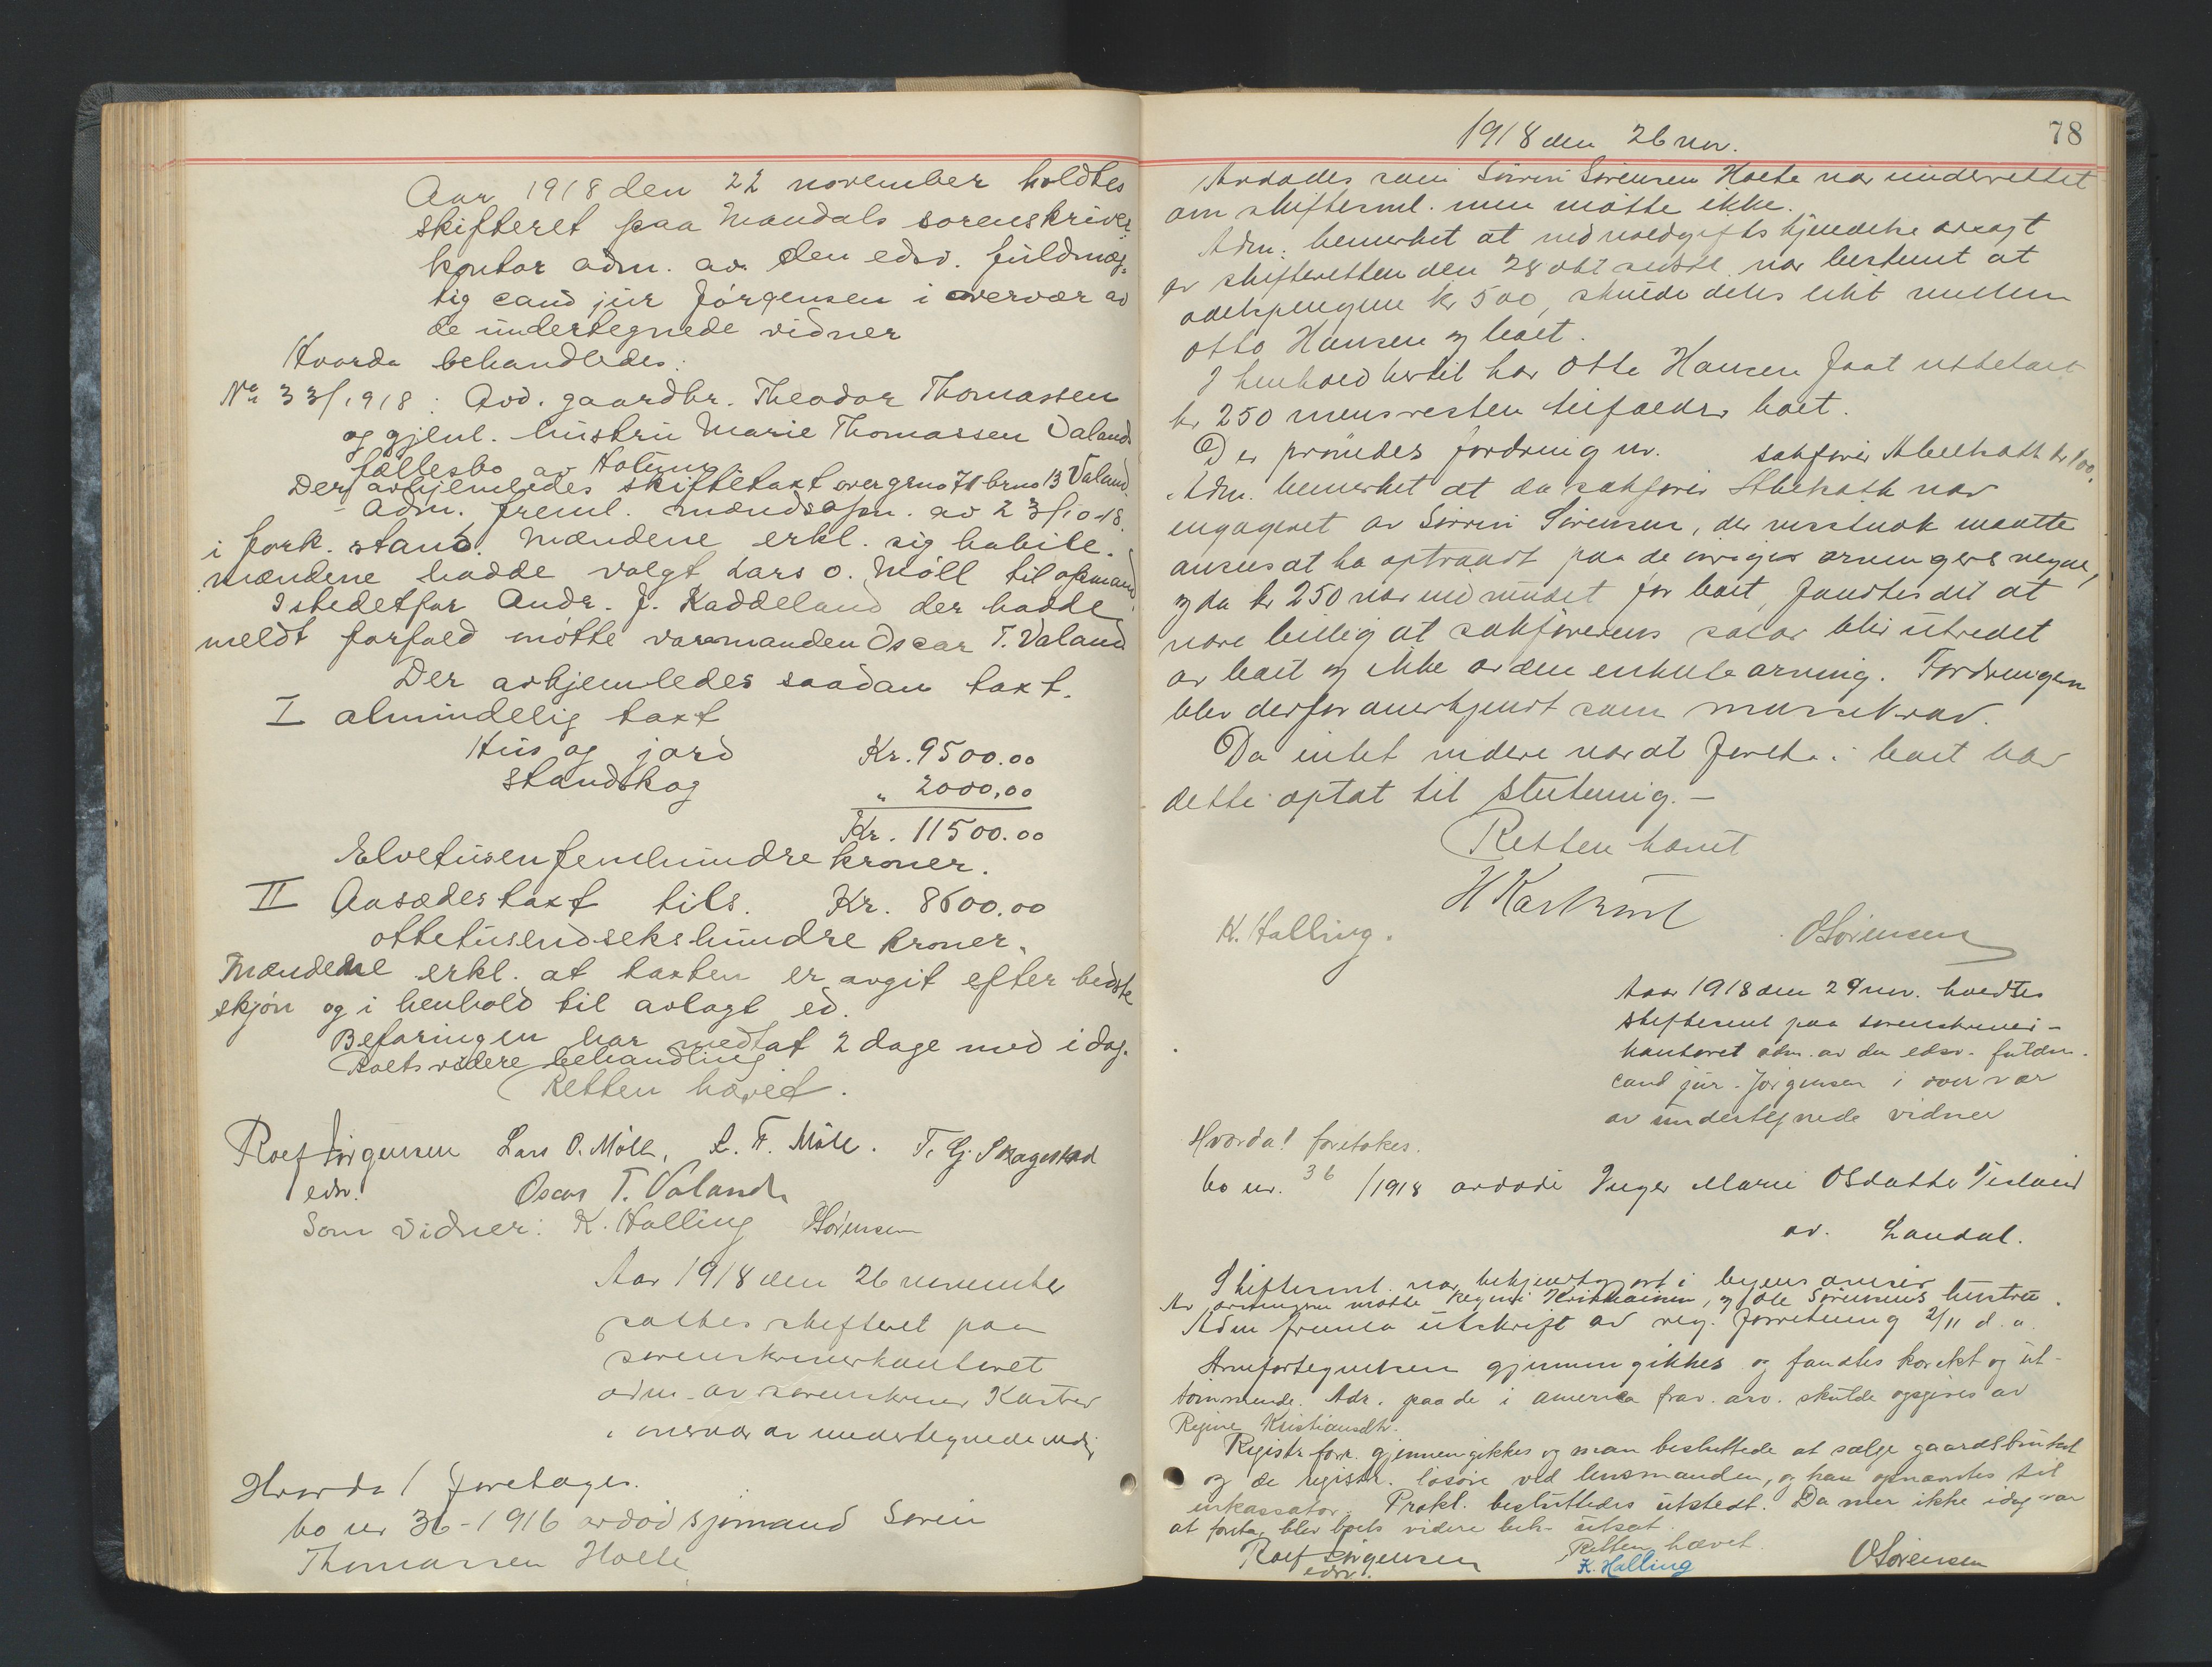 Aar 1918 den 22 november holdtes
skifteret paa Mandals sorenskriver
kontor adm. av den edsv. fuldmæg-
tig cand jur Jörgensen i overvær av
de undertegnede vidner
Hvorda behandledes:
No 33/1918: Avd. gaardbr. Theodor Thomassen
og gjenl. hustru Marie Thomassen Valand
fællesbo av Holum.
Der avhjemledes skiftetaxt over grno 71 brno 13 Valand.
Adm. freml. mændsopn. av 23/10-18.
i fork. stand. Mændene erkl. sig habile.
Mændene hadde valgt Lars O. Möll til opmand.
Istedetfor Andr. J. Kaddeland der hadde
meldt forfald mötte varamanden Oscar T. Valand
Der avhjemledes saadan taxt.
I almindelig taxt
Hus og jord Kr. 9500.00
standskog " 2000,00
Kr. 11500.00
Elvetusenfemhundre kroner.
II Aasædestaxt tils. Kr. 8600.00
ottetusendsekshundre kroner.
Mændene erkl. at taxten er avgit efter bedste
skjön og i henhold til avlagt ed.
Befaringen har medtat 2 dage med idag.
Boets videre behandling
Retten hævet.
Rolf Jörgensen Lars O. Möll, L. F. Möll. T. Gj. Skagestad
edsv. Oscar T. Valand
Som vidner: K. Halling OSörensen
Aar 1918 den 26 november
sattes skifteret paa
sorenskriverkontoret
adm. av sorenskriver Kastrud
i overvær av undertegnede vidn.
Hvorda! foretages.
bo nr 36-1916 avdöd sjömand Sören
Thomassen Holte
78
1918 den 26 nov.
Avdödes sön Sörren Sörensen Holte var underrettet
om skiftesml. men mötte ikke.
Adm. bemerket at ved voldgiftskjendelse avsagt
av skifteretten den 28 okt sidstl. var bestemt at
odelspengene kr 500, skulde deles likt mellem
Otto Hansen og boet.
I henhold hertil har Otto Hansen faat utbetalt
kr. 250 mens resten tilfalder boet.
Der prövedes fordring nr. sakförer Abelseth kr 100.
Adm. bemerket at da sakförer Abelseth var
engageret av Sörren Sörensen, der visstnok maatte
ansees at ha optraadt paa de övriges arvingers vegne,
og da kr 250 var indvundet for boet, fandtes det at
være billig at sakförerens salær blir utredet
av boet og ikke av den enkelte arving. Fordringen
blev derfor anerkjendt som massekrav.
Da intet videre var at foreta i boet blev
dette optat til slutning.-
Retten hævet
H Kastrud
K. Halling. OSörensen
Aar 1918 den 29 nov. holdtes
skiftesml paa sorenskriver-
kontoret adm. av den edsv. fuldm.
cand jur. Jörgensen i overvær
av undertegnede vidner
Hvorda! foretokes.
bo nr. 36/1918 avdöde Inger Marie Olsdatter Tisland
av. Laudal.
Skiftesml. var bekjendtgjort i byens aviser
Av arvingerne mötte Regine Kristiansen, og Ole Sörensens hustru.
Adm fremla utskrift av reg. forretning 2/11 d. a.
Arvefortegnelsen gjennemgikkes og fandtes korekt og ut-
tömmende. Adr. paa de i america frav. arv. skulde opgives av
Regine Kristiansdtr.
Registr.forr. gjennemgikkes og man besluttede at sælge gaardsbruket
og de registr. lösöre ved lensmanden, og han opnævntes til
inkassator. Prokl. besluttedes utstedt. Da mer ikke idag var
at foreta, blev boets videre beh. utsat.
Retten hævet.
Rolf Jörgensen K. Halling OSörensen
edsv.